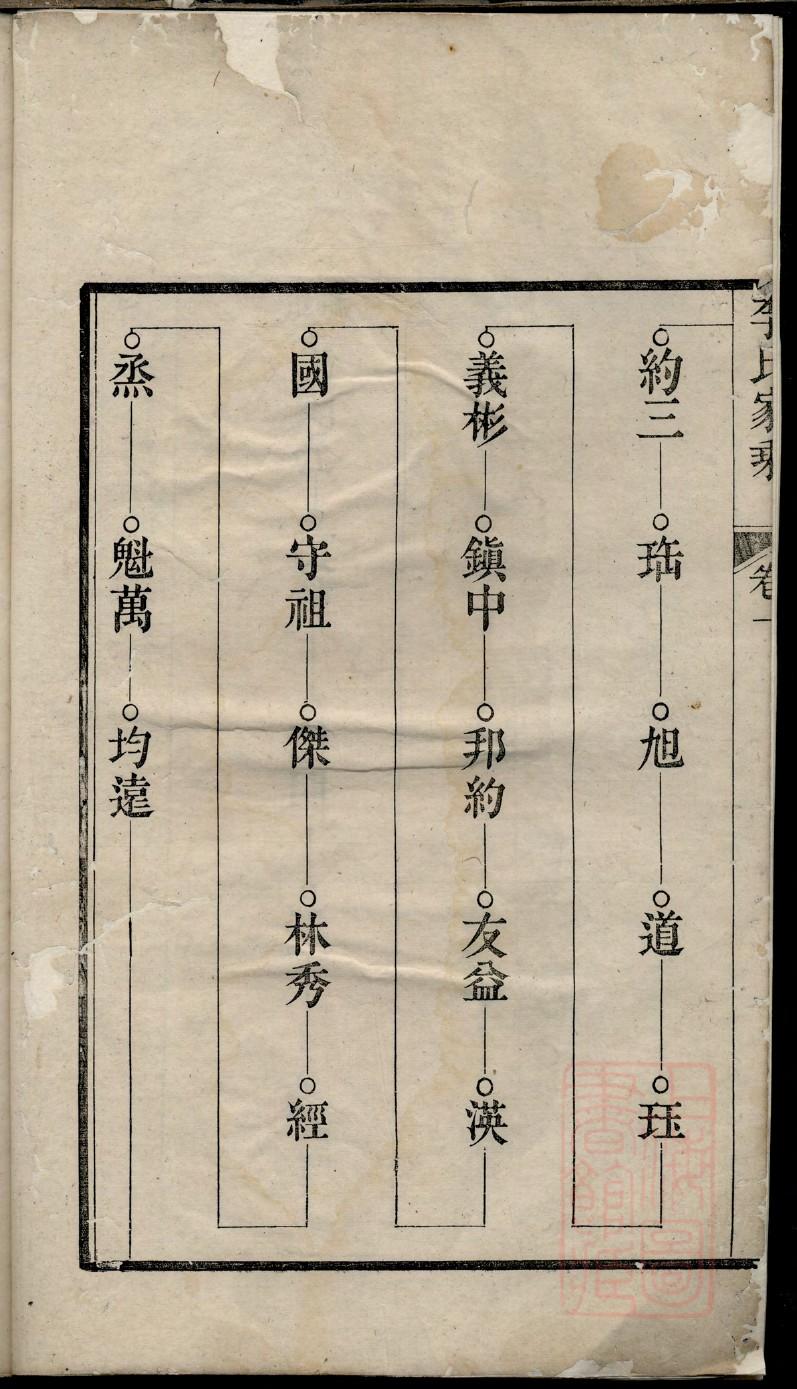 李氏家乘 卷一
約三 𤤾 旭 道 珏
義彬 鎮中 邦約 友益 渶
國 守祖 傑 林秀 經
烝 魁萬 均遠
上海圖書館藏